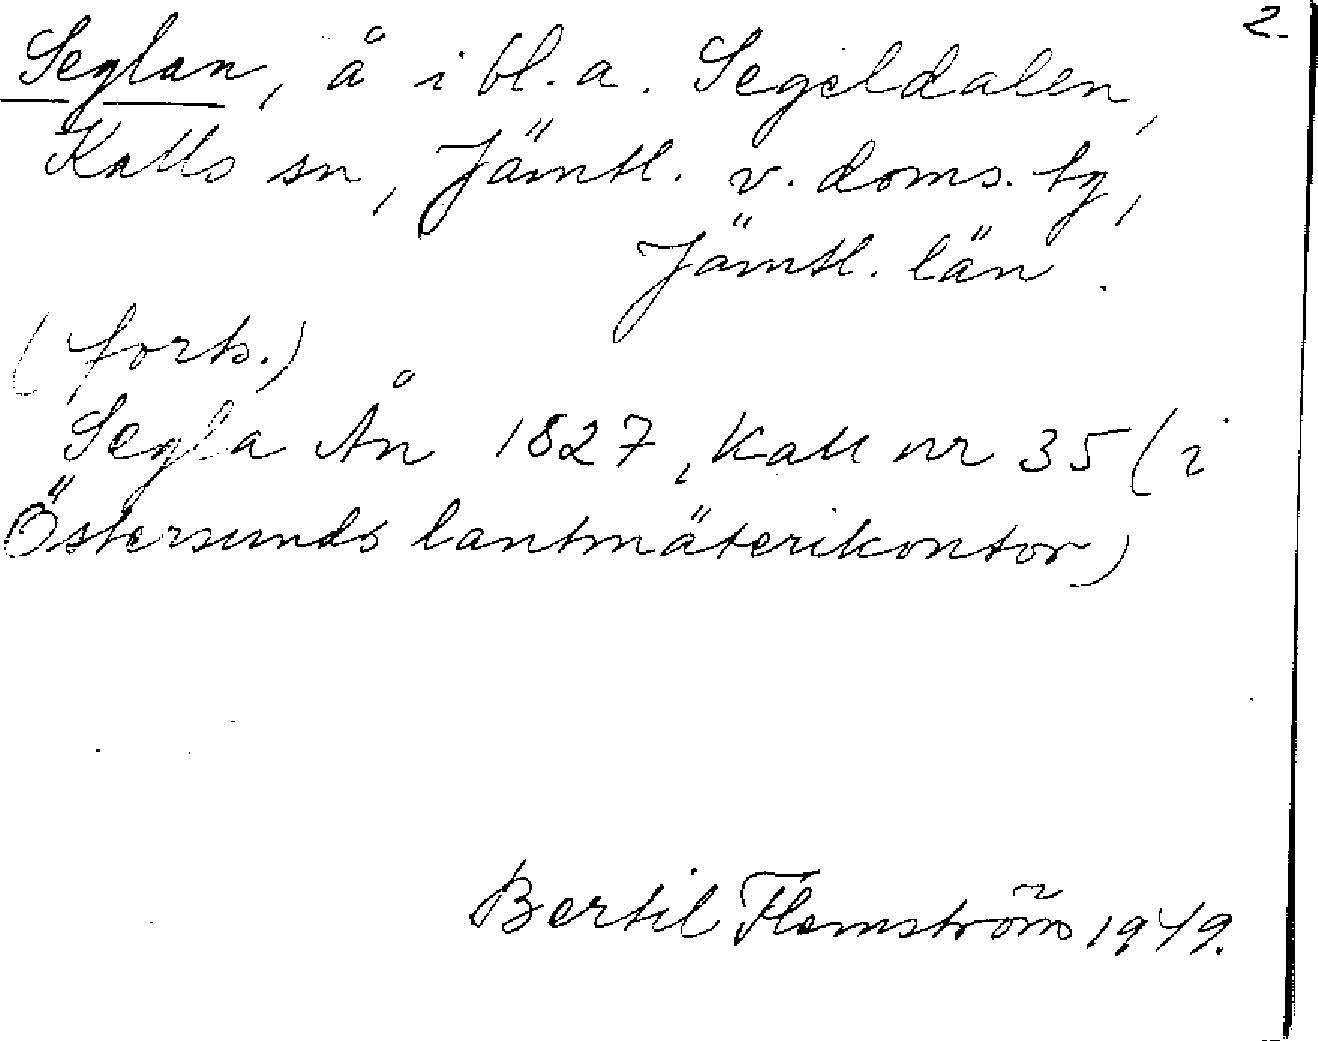 2.
Seglan, å i bl. a. Segeldalen,
Kalls sn, Jämtl. v. doms. tg,
Jämtl. län.
(forts.)
Segla Ån 1827, Kall nr 35 (i
Östersunds lantmäterikontor)
Bertil Flemström 1949.